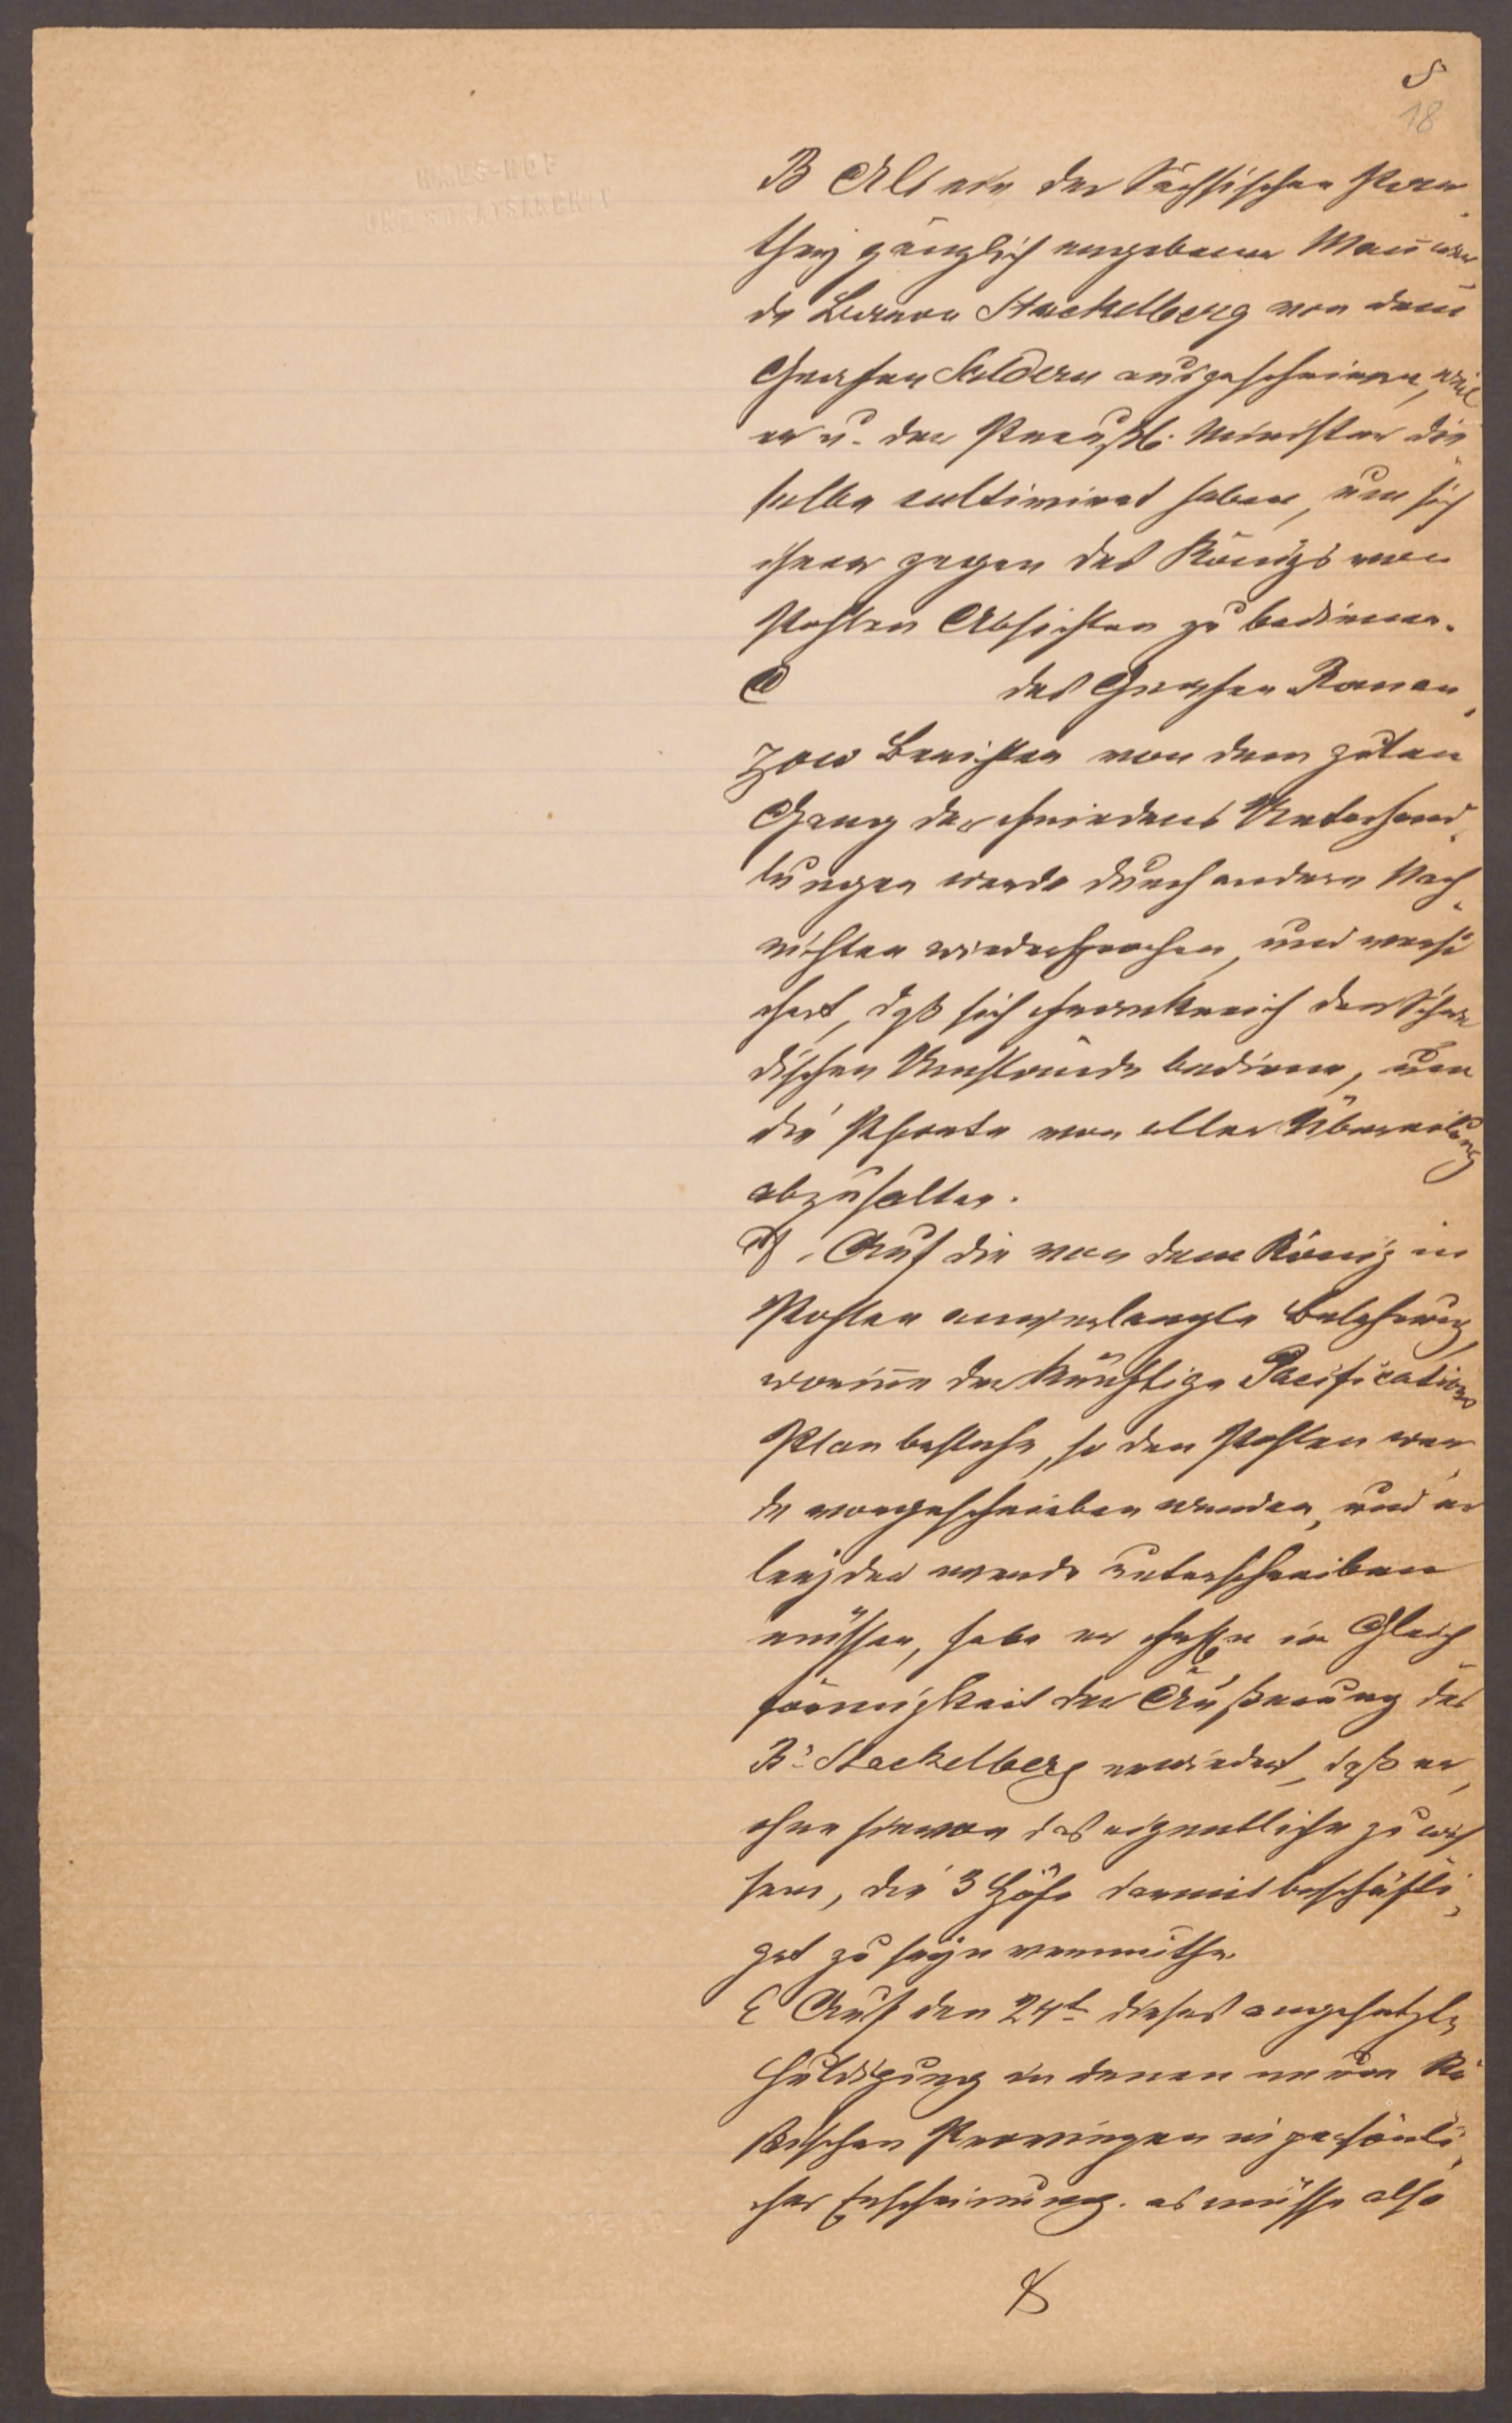 5
18
HAUS-HOF
UND STAATSARCHIV
B Als ein der Sächsischen Par-
they gänzlich ergebener Mañ wer
de Baron Stackelberg von dem
Grafen Saldern ausgeschrieen, weil
er u. der Preußl. Minister die-
selbe cultivirt haben, um sich
ihrer gegen des Königs von
Pohlen Absichten zu bedienen.
C des Grafen Roman-
zow Berichten von dem guten
Gang der Friedens Unterhand-
lungen werde durch andere Nach-
richten wiedersprochen, und versi
chert, daß sich Frankreich der Schwe
dischen Umstände bediene, um
die Pforte von aller Übereilung
abzuhalten.
D. Auf die von dem König in
Pohlen anverlangte Belehrung,
worinn der künftige Pacifications
Plan bestehe, so den Pohlen wer-
de vorgeschrieben werden, und er
leyder werde unterschreiben
müssen, habe er in Gleich-
förmigkeit der Äußerung des
B: Stackelberg erwiedert, daß er,
ohne hievon das eigentliche zu wis
sen, die 3 Höfe damit beschäfti-
get zu seyn vermuthe.
E Auf den 24t dieses angesetzte
Huldigung in denen neuen Ru
ßischen Provinzen in persönli-
cher Erscheinung. es müsse also